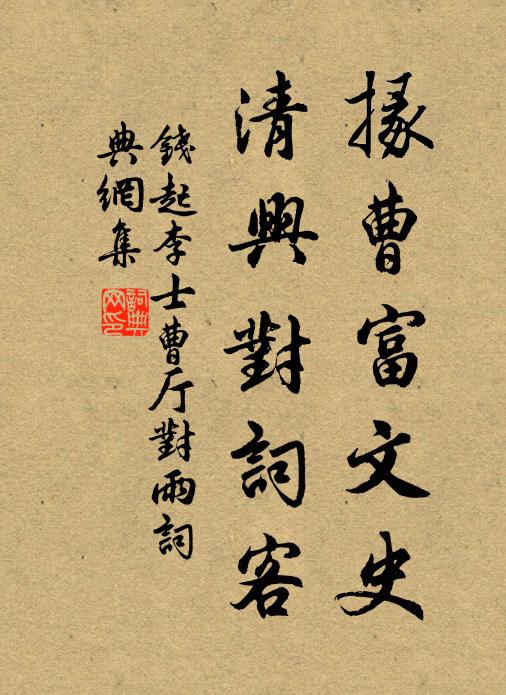 掾曹富文史
清興對詞客
錢起李士曹厅對雨詞
典網集
詞典
网印